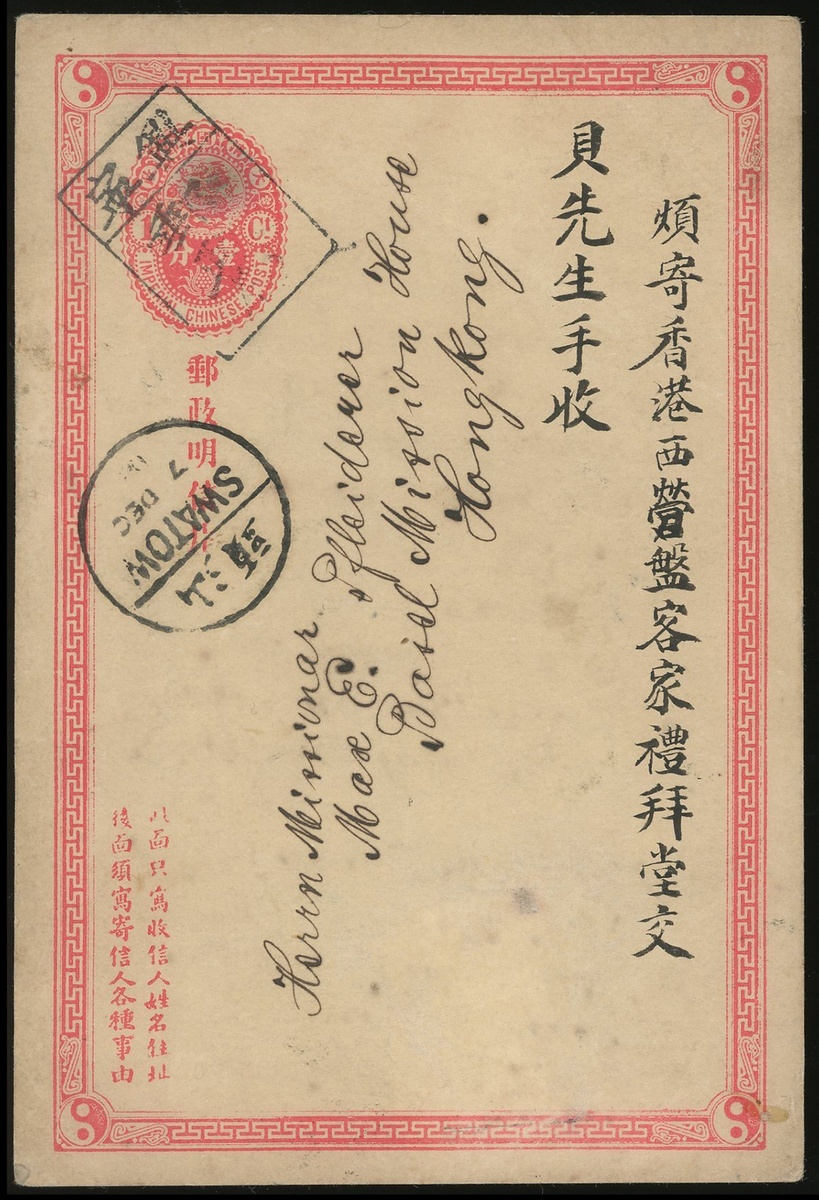 煩寄香港西營盤客家禮拜堂交
貝先生手收
Herrn Missionar
Max E. Pfleiderer
Basel Mission House
Hongkong.
1 Ct
壹分
IMPERIAL CHINESE POST
郵政明信片
SWATOW
7 DEC
汕頭
此面只寫收信人姓名住址
後面須寫寄信人各種事由